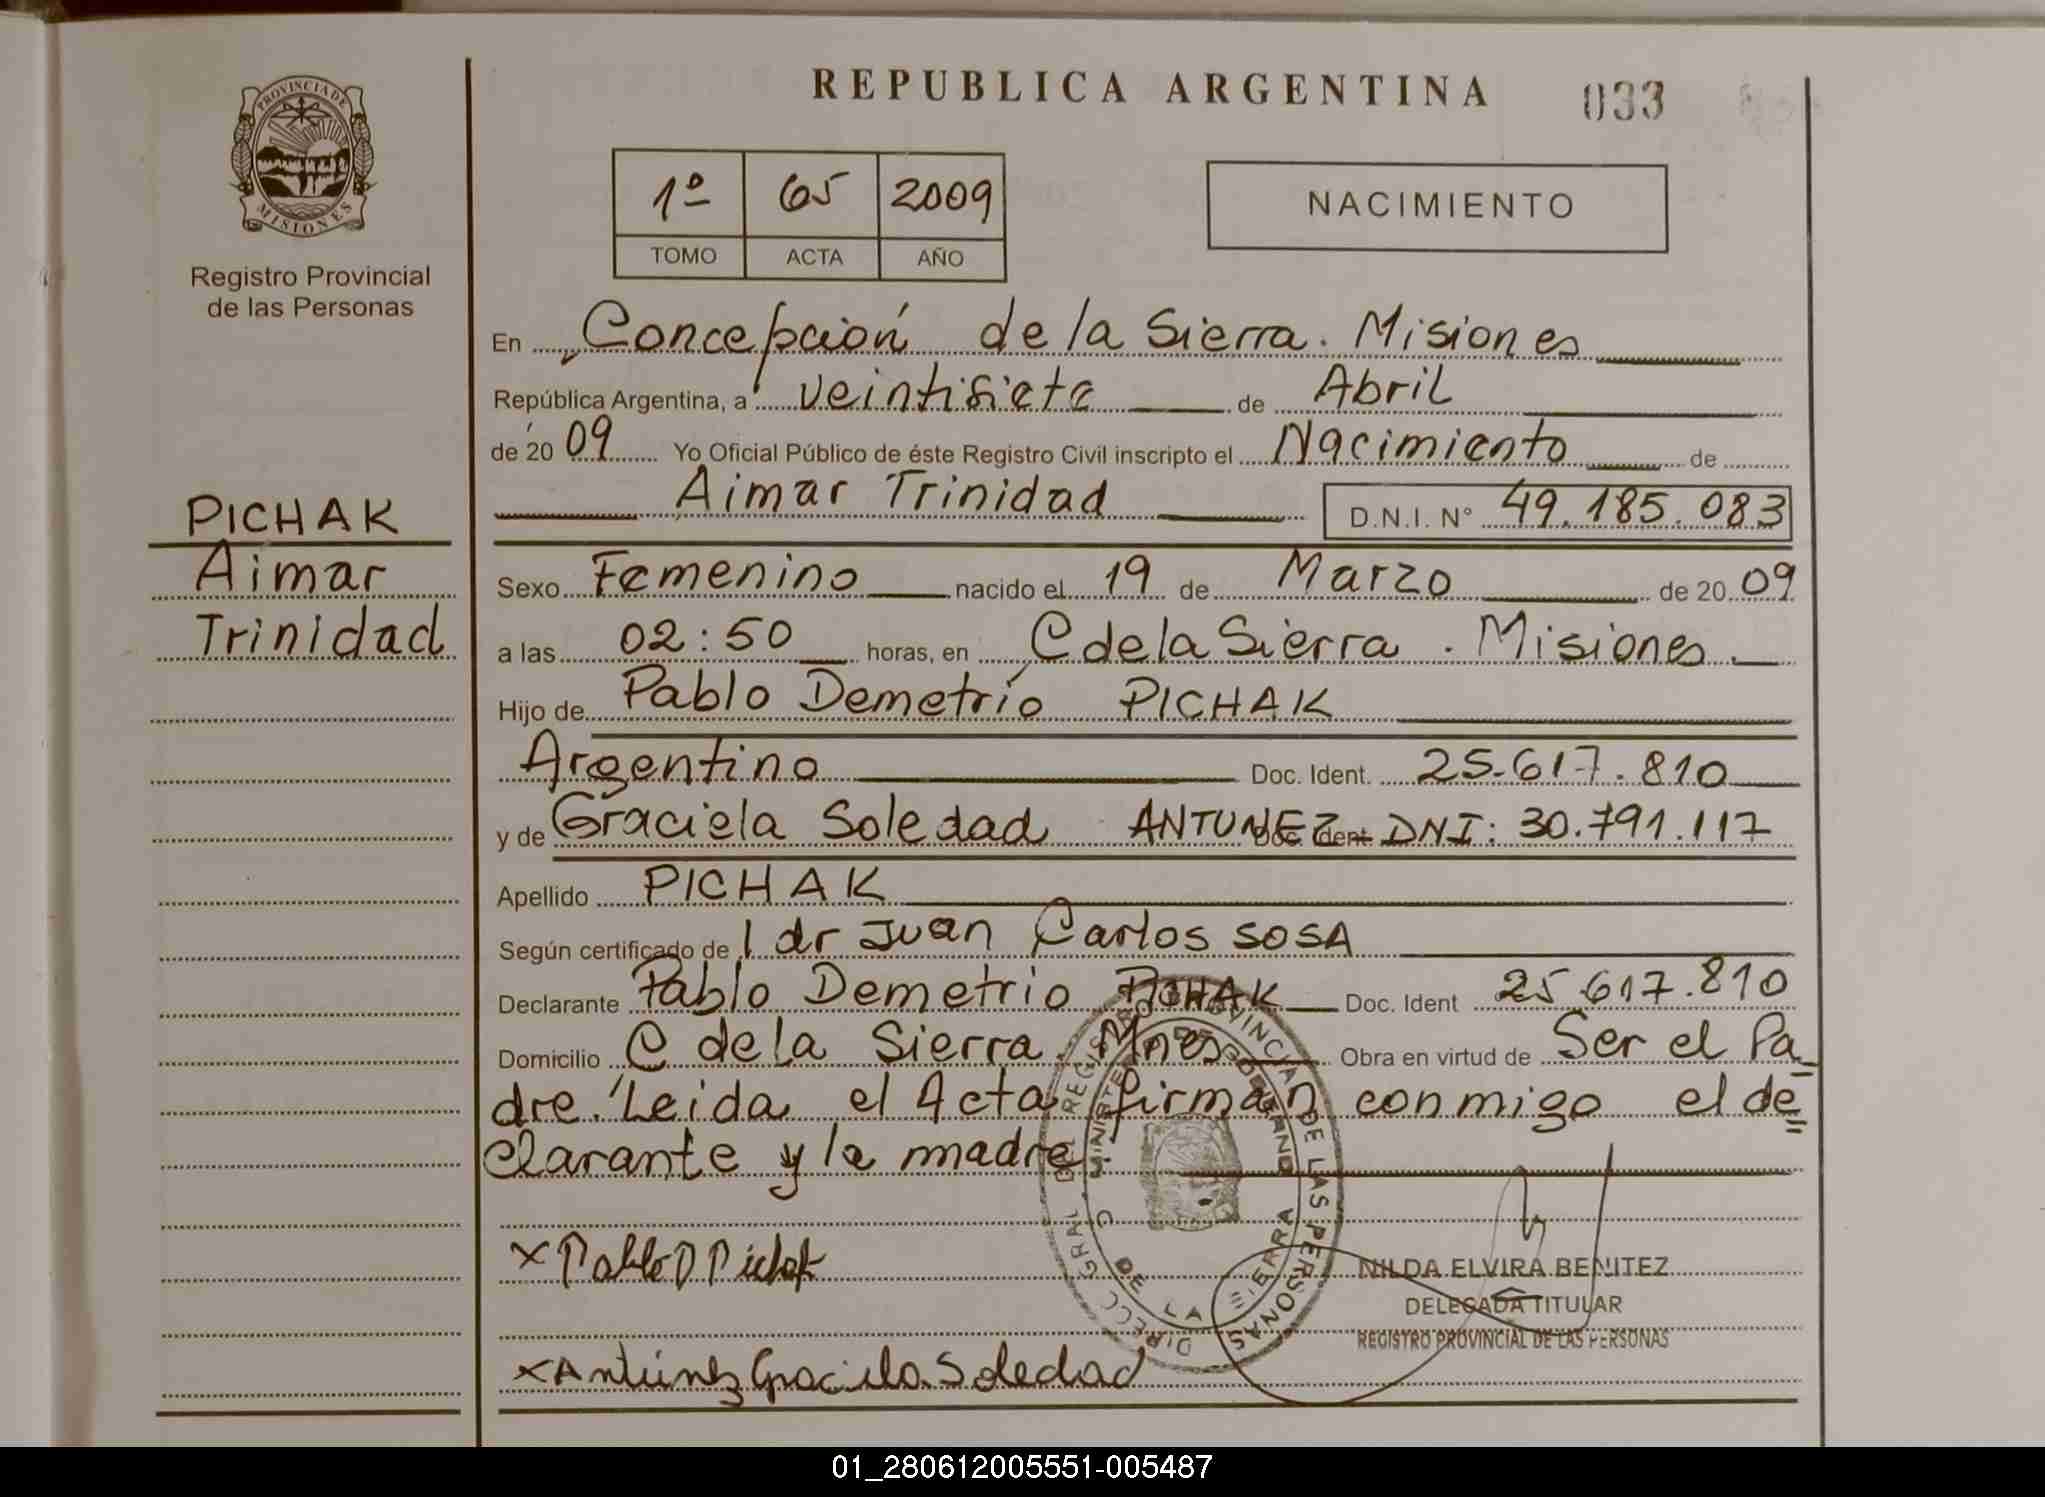 REPUBLICA ARGENTINA
033
PROVINCIA DE
MISIONES
Registro Provincial
de las Personas
1º 65 2009
TOMO ACTA AÑO
NACIMIENTO
En Concepción de la Sierra. Misiones
República Argentina, a veintisiete de Abril
de 20 09 Yo Oficial Público de éste Registro Civil inscripto el Nacimiento de
Aimar Trinidad D.N.I. N° 49.185.083
PICHAK
Aimar
Trinidad
Sexo Femenino nacido el 19 de Marzo de 20 09
a las 02:50 horas, en C de la Sierra. Misiones.
Hijo de Pablo Demetrio PICHAK
Argentino Doc. Ident. 25.617.810
y de Graciela Soledad ANTUNEZ Doc. Ident DNI: 30.791.117
Apellido PICHAK
Según certificado de l dr Juan Carlos SOSA
Declarante Pablo Demetrio PICHAK Doc. Ident 25.617.810
Domicilio C de la Sierra. Mnes Obra en virtud de Ser el Pa
dre. Leida el Acta firman conmigo el de
clarante y la madre.
DIRECC GRAL DEL REGISTRO PROVINCIAL DE LAS PERSONAS
MINISTERIO DE GOBIERNO
C DE LA SIERRA
x Pablo D Pichak
NILDA ELVIRA BENITEZ
DELEGADA TITULAR
REGISTRO PROVINCIAL DE LAS PERSONAS
x Antúnez Graciela Soledad
01_280612005551-005487